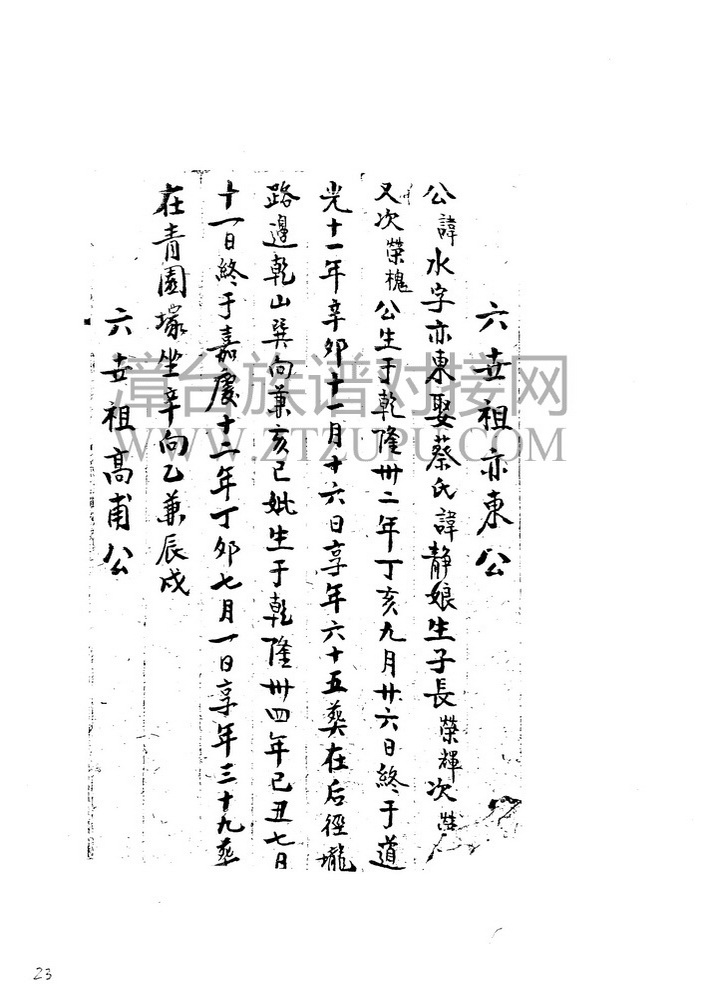 六世祖亦東公
公諱水字亦東娶蔡氏諱静娘生子長榮輝次
又次榮槐公生于乾隆卅二年丁亥九月廿六日終于道
光十一年辛卯十一月十六日享年六十五葬在后徑壠
路邊乾山巽向兼亥巳妣生于乾隆卅四年己丑七月
十一日終于嘉慶十二年丁卯七月一日享年三十九葬
在青園塚坐辛向乙兼辰戍
六世祖高甫公
漳台族谱对接网
WWW.ZTZUPU.COM
23